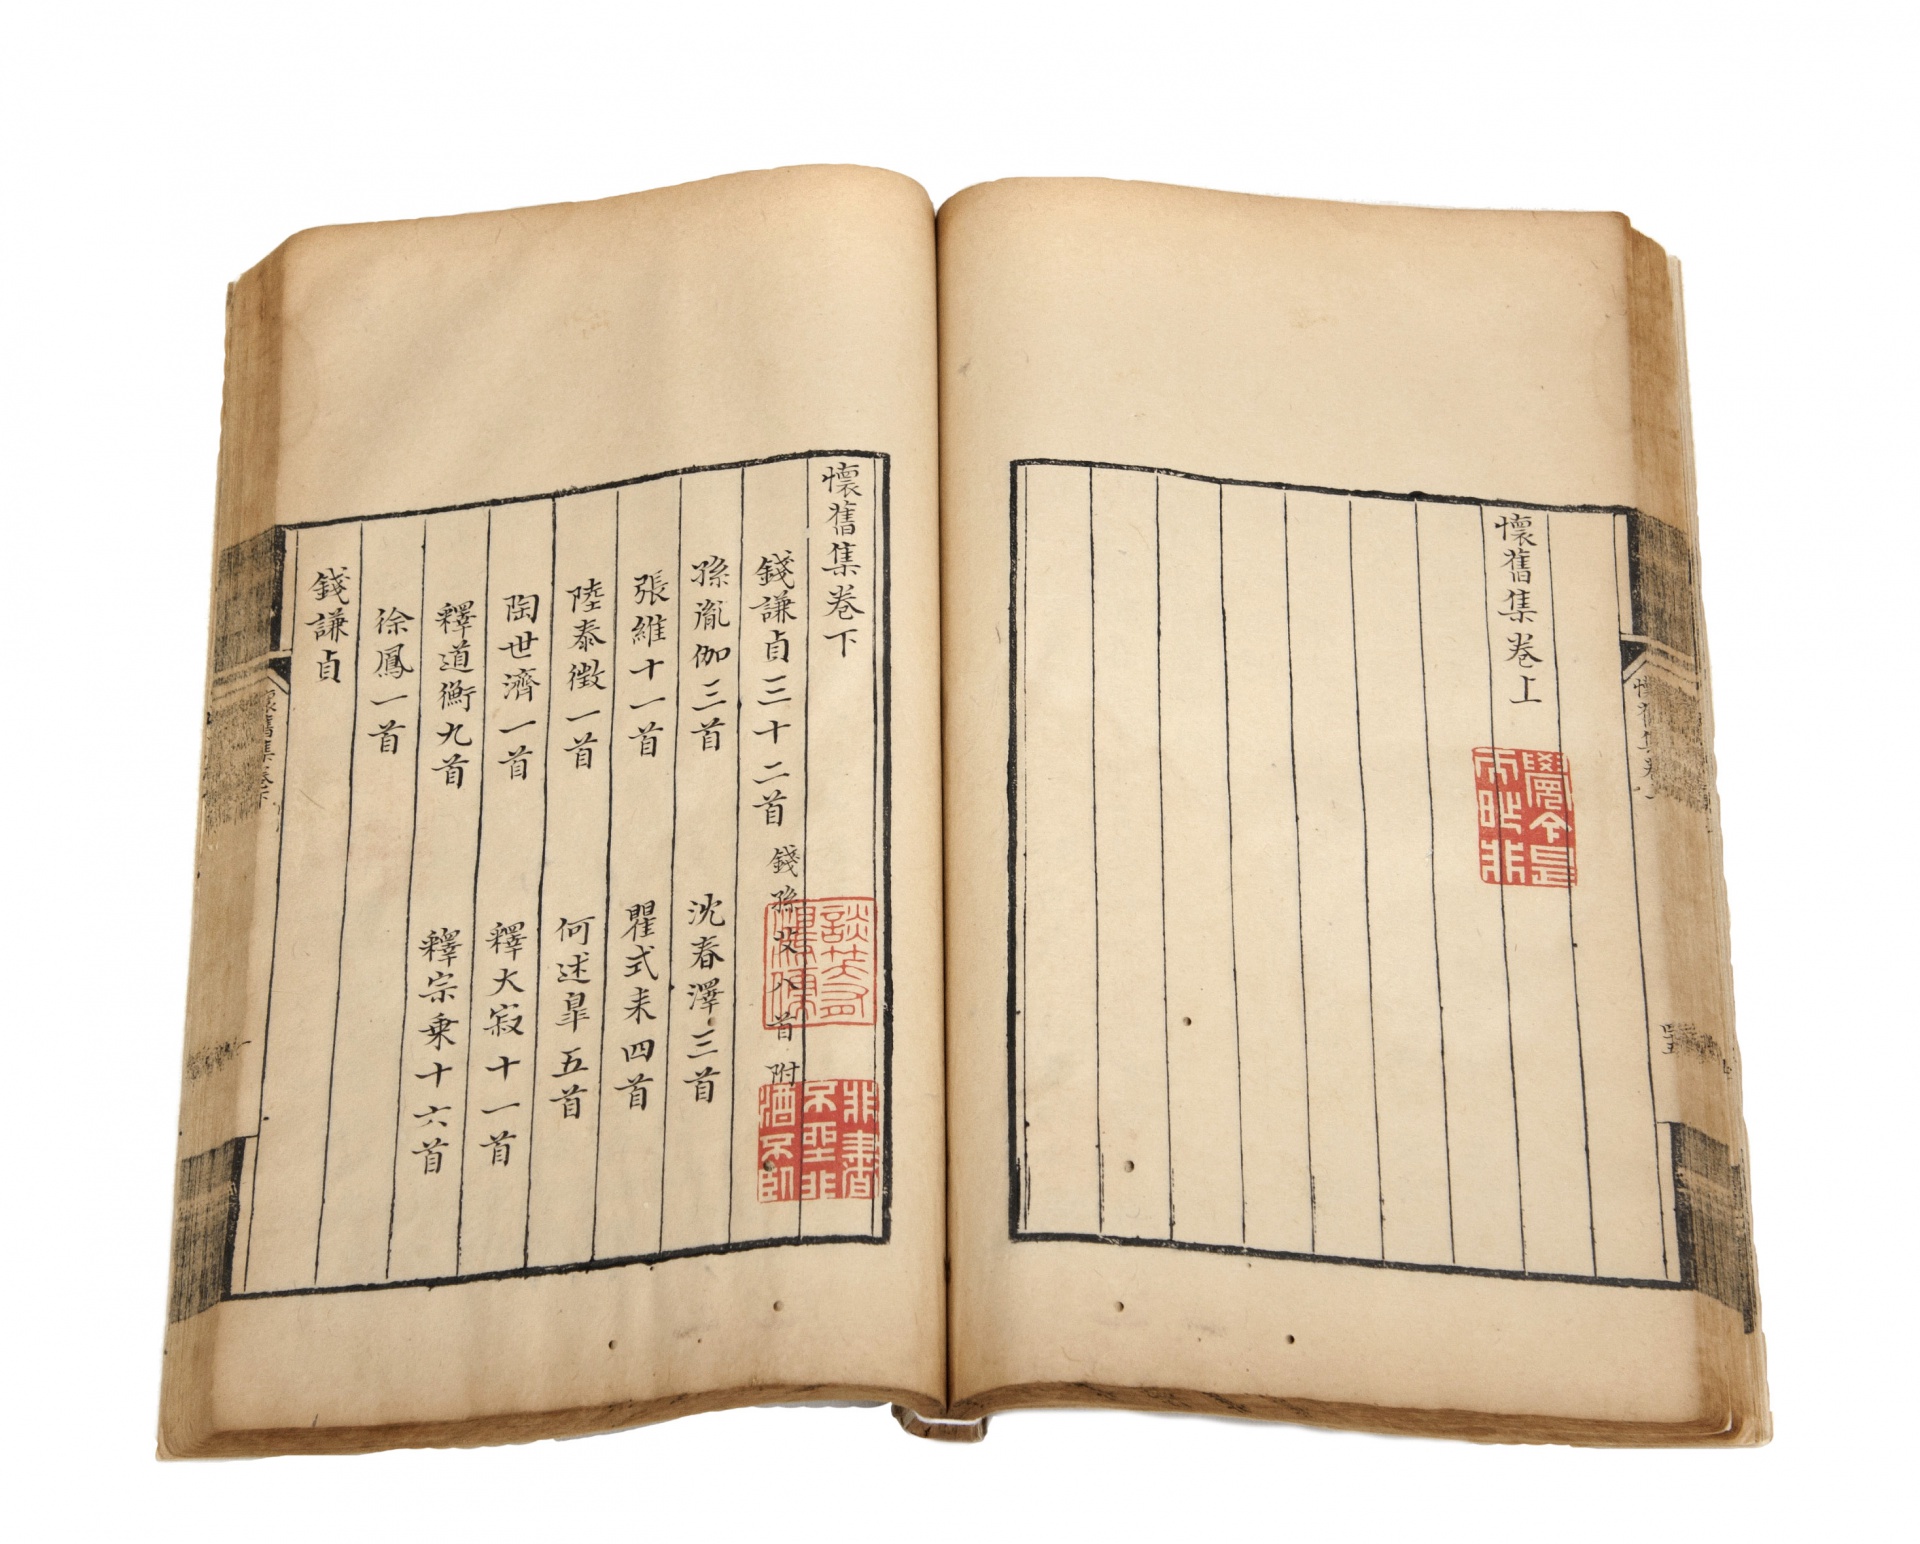 懷舊集卷上
覺今是
而昨非
懷舊集卷下
錢謙貞三十二首 錢孫艾八首附
談笑有
鴻儒
孫胤伽三首 沈春澤三首
張維十一首 瞿式耒四首
陸泰徵一首 何述皐五首
陶世濟一首 釋大寂十一首
釋道衡九首 釋宗乗十六首
徐鳳一首
錢謙貞
懷舊集卷下